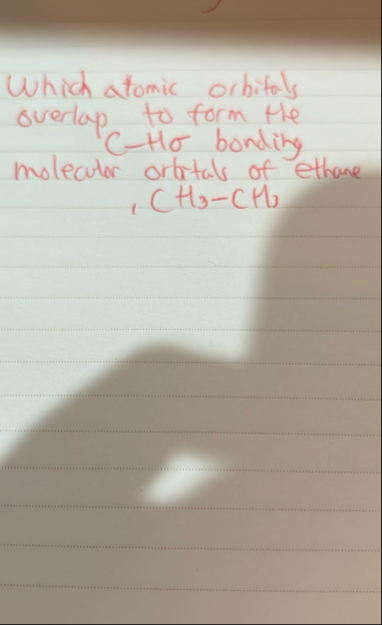 Which atomic orbitals
overlap to form the
C-Hσ bonding
molecular orbitals of ethane
, CH3-CH3